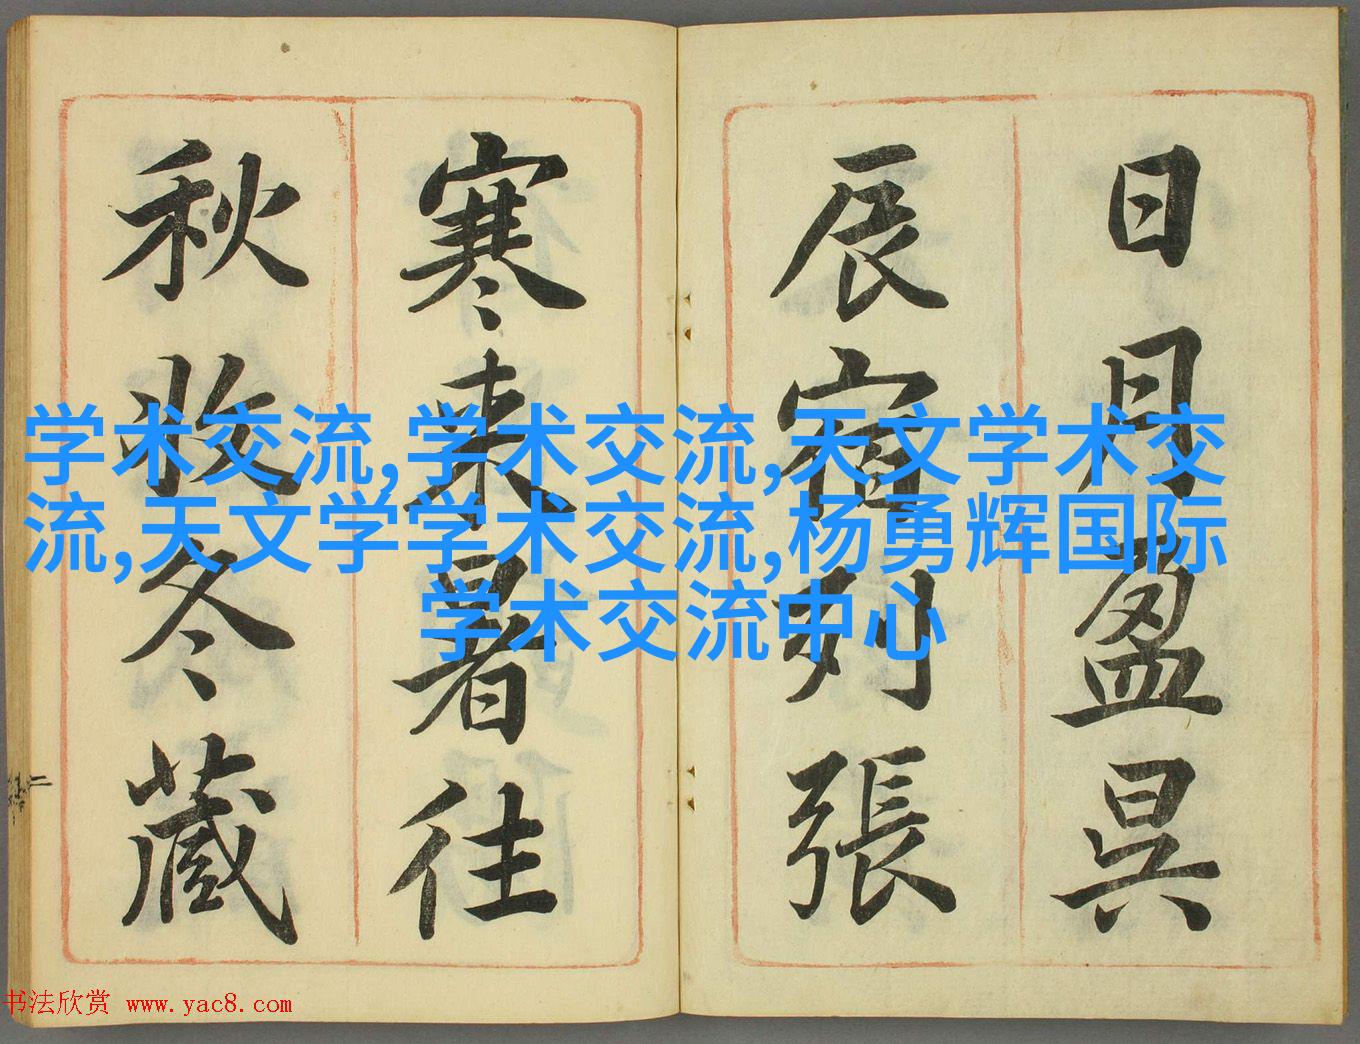 日月盈昃
辰宿列張
寒来暑往
秋收冬藏
学术交流,学术交流,天文学术交
流,天文学学术交流,杨勇辉国际
学术交流中心
二
书法欣赏 www.yac8.com